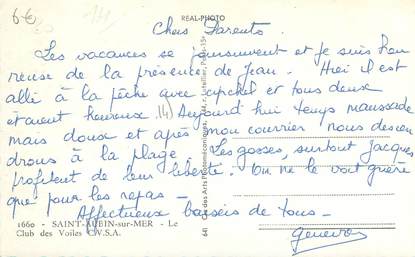 6€
REAL-PHOTO
Chers Parents
Les vacances se poursuivent et je suis heu
reuse de la présence de Jean. Hier il est
allé à la pêche avec et tous deux
étaient heureux. Aujourd'hui temps maussade
mais doux et après mon courrier nous descen
drons à la plage. Les gosses, surtout Jacques,
profitent de leur liberté. On ne le voit guère
que pour les repas -
Affectueux baisers de tous -
1660 - SAINT-AUBIN-sur-MER - Le
Club des Voiles C.V.S.A.
641 Cie des Arts Photomécaniques, 44, r. Letellier, Paris-15e